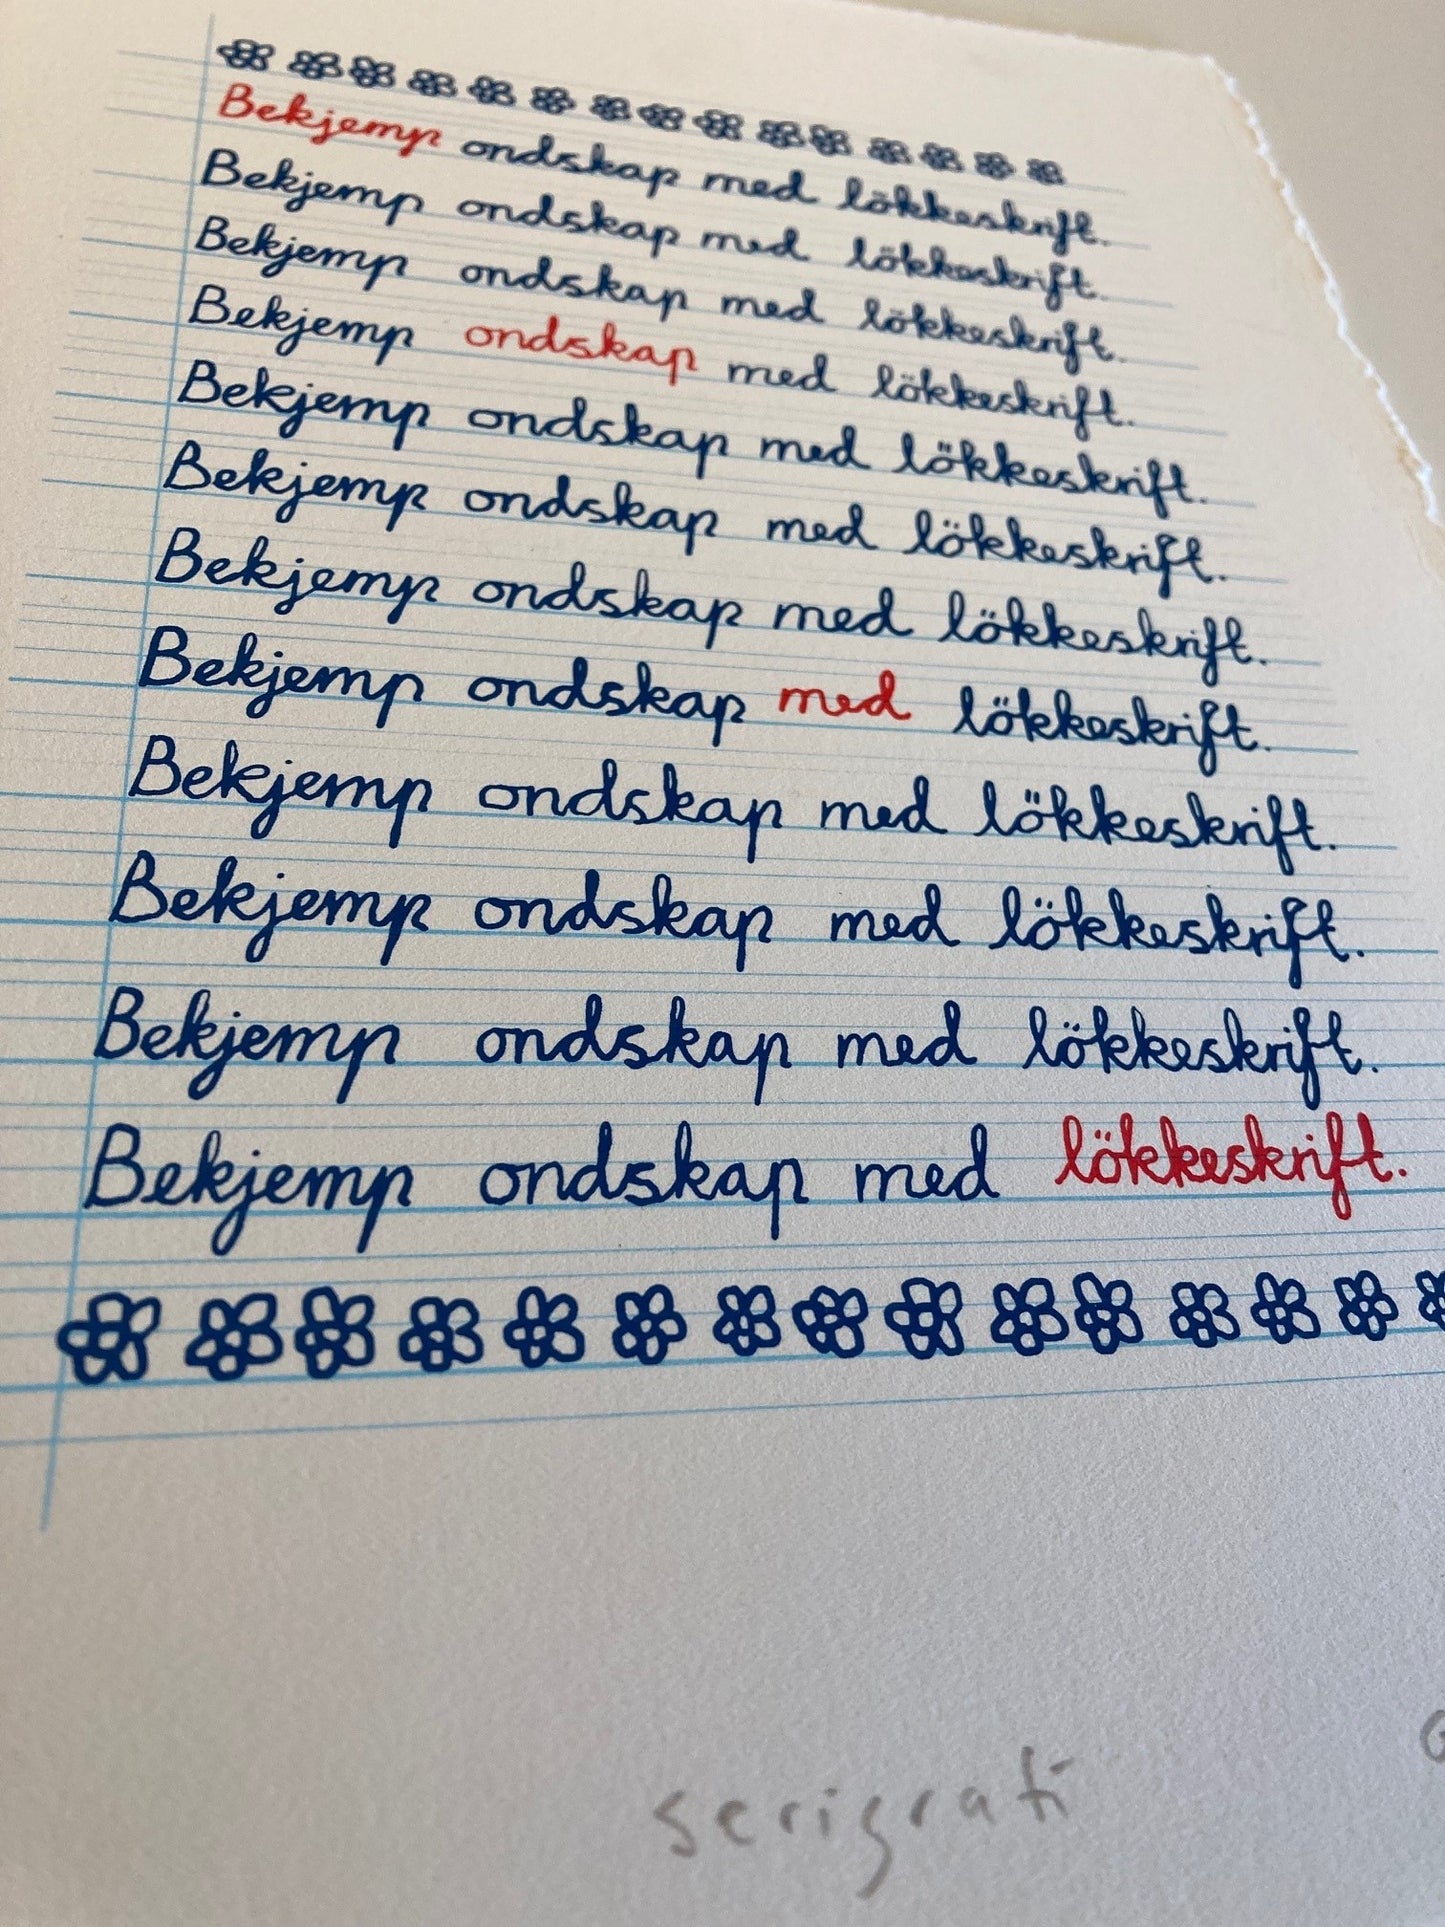 Bekjemp ondskap med lökkeskrift.
Bekjemp ondskap med lökkeskrift.
Bekjemp ondskap med lökkeskrift.
Bekjemp ondskap med lökkeskrift.
Bekjemp ondskap med lökkeskrift.
Bekjemp ondskap med lökkeskrift.
Bekjemp ondskap med lökkeskrift.
Bekjemp ondskap med lökkeskrift.
Bekjemp ondskap med lökkeskrift.
Bekjemp ondskap med lökkeskrift.
Bekjemp ondskap med lökkeskrift.
Bekjemp ondskap med lökkeskrift.
serigrafi